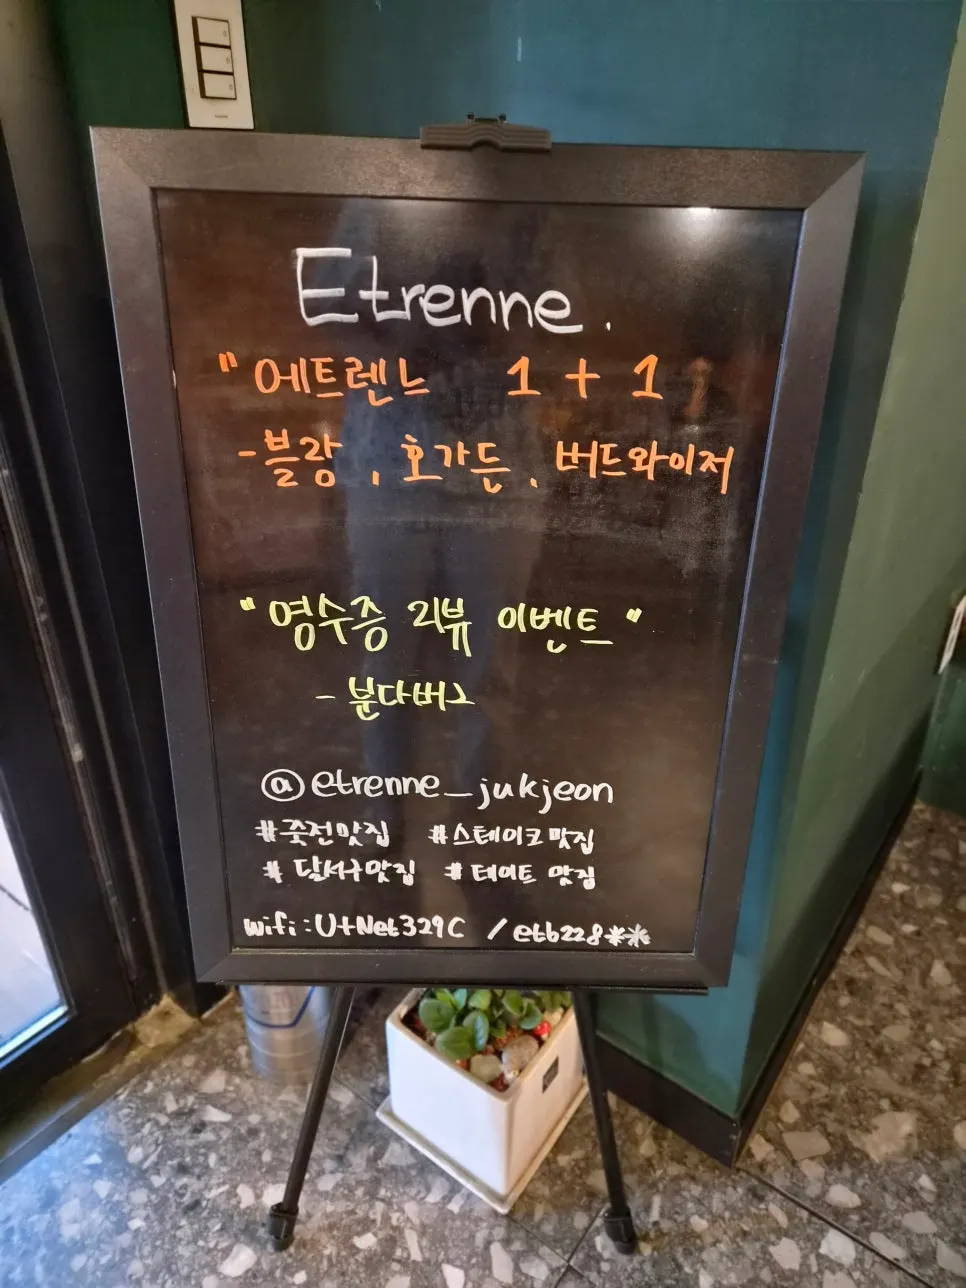 Etrenne.
"에트렌느 1+1
-블랑, 호가든, 버드와이저
"영수증 리뷰 이벤트"
- 분다버그
@etrenne_jukjeon
#죽전맛집 #스테이크맛집
#달서구맛집 #데이트 맛집
wifi : U+Net329C / etb228**